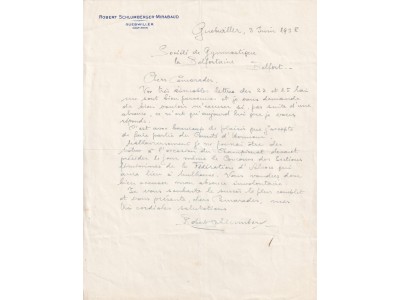 ROBERT SCHLUMBERGER MIRABAUD
GUEBWILLER
Guebwiller, 2 Juin 1938
Société de Gymnastique
la Belfortaine
Belfort
Chers Camarades,
Vos très aimables lettres des 23 et 25 Mai
me sont bien parvenues et je vous demande
de bien vouloir m'excuser si par suite d'une
absence, ce n'est qu'aujourd'hui que je vous
réponds.
C'est avec beaucoup de plaisir que j'accepte
de faire partie du Comité d'Honneur
Malheureusement je ne pourrai être des
vôtres à l'occasion du Championnat devant
présider le jour même le Concours des Sections
féminines de la Fédération d'Alsace qui
aura lieu à Mulhouse. Vous voudrez donc
bien excuser mon absence involontaire.
Je vous souhaite le succès le plus complet
et vous présente, chers Camarades, mes
très cordiales salutations